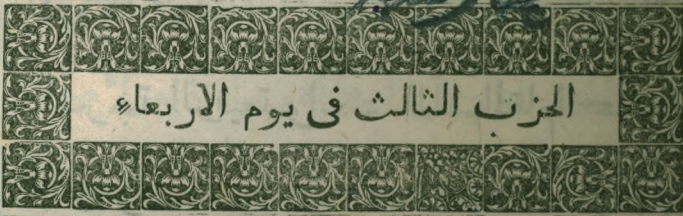 الحزب الثالث فى يوم الاربعاء